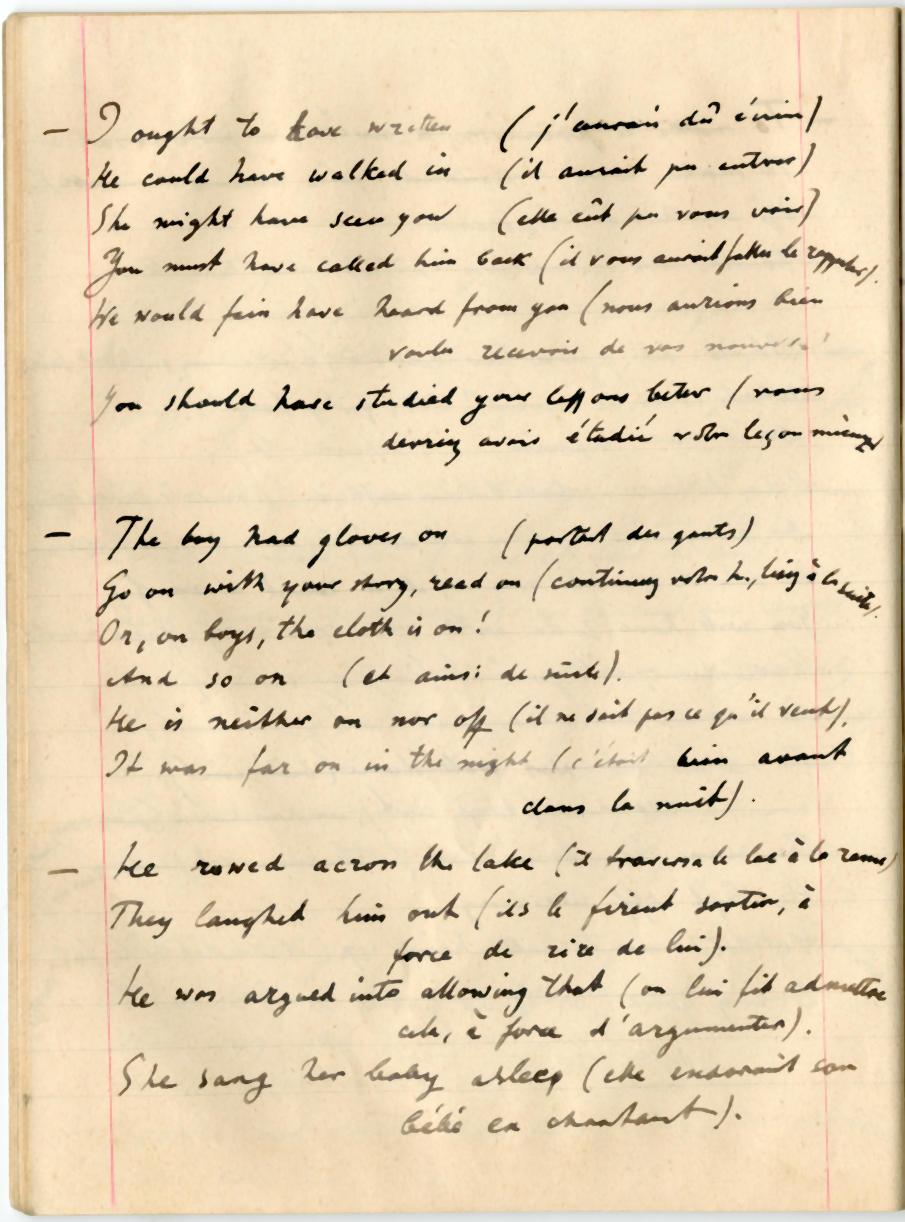 — I ought to have written (j'aurais dû écrire)
He could have walked in (il aurait pu entrer)
She might have seen you (elle eût pu vous voir)
You must have called him back (il vous aurait fallu le rappeler).
We would fain have heard from you (nous aurions bien
voulu recevoir de vos nouvelles)
You should have studied your lessons better (vous
devriez avoir étudié votre leçon mieux)
— The boy had gloves on (portait des gants)
Go on with your story, read on (continuez votre h., lisez à la suite).
On, on boys, the cloth is on!
And so on (et ainsi de suite).
He is neither on nor off (il ne sait pas ce qu'il veut).
It was far on in the night (c'était bien avant
dans la nuit).
— He rowed across the lake (il traversa le lac à la rame)
They laughed him out (ils le firent sortir, à
force de rire de lui).
He was argued into allowing that (on lui fit admettre
cela, à force d'argumenter).
She sang her baby asleep (elle endormit son
bébé en chantant).